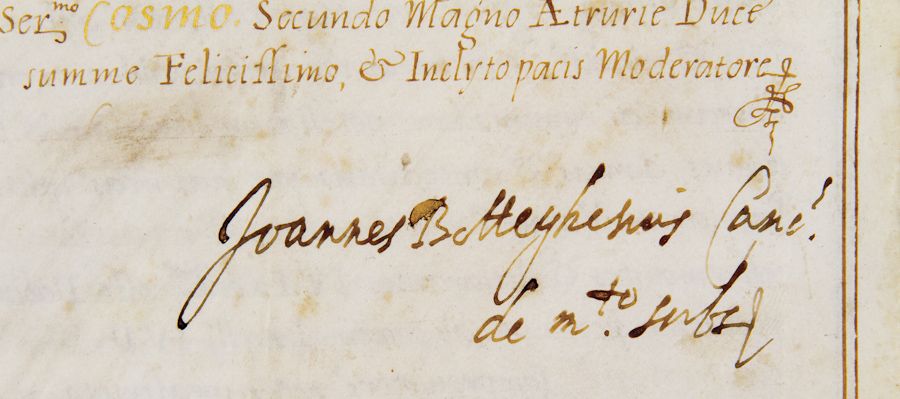 Ser.mo Cosmo. Secundo Magno Ætrurie Duce
summe Felicissimo, & Inclyto pacis Moderatore
Joannes Canc.s
de m.to subs